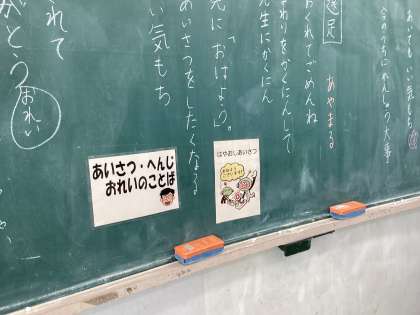 も 気もち
今のうちにれんしゅう大事
遠足
おくれてごめんね
あやまる
まわりをかくにんして
先生にかくにん
先に「おはよう」。
あいさつをしたくなる
い気もち
れて
がとう
おれい
あいさつ・へんじ
おれいのことば
はやおしあいさつ